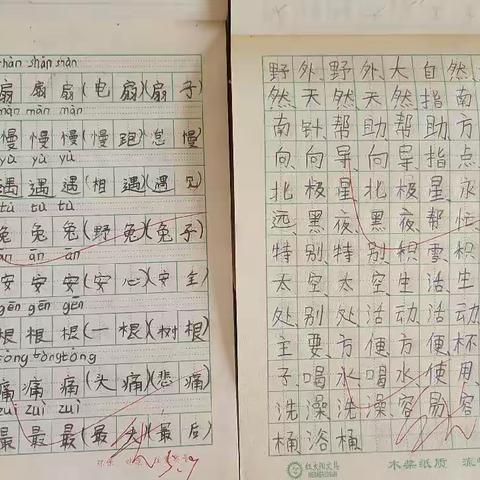 shàn shān shàn
扇扇扇(电扇)(扇子)
màn màn màn
慢慢慢(慢跑)(怠慢)
yù yù yù
遇遇遇(相遇)(遇见)
tù tù tù
兔兔兔(野兔)(兔子)
ān ān ān
安安安(安心)(安主)
gēn gēn gēn
根根根(一根)(树根)
tòng tòng tòng
痛痛痛(头痛)(悲痛)
zuì zuì zuì
最最最(最大)(最后)
野外、野外、大自然、
然、天然、天然、指南
南针、帮助、帮助、方
向、向导、向导、指点、
北极星、北极星、永
远、黑夜、黑夜、帮忙
特别、特别、积雪、积
太空、太空、生活、生
处、别处、活动、活动
主要、方便、方便、杯
子、喝水、喝水、使用、
洗澡、洗澡、容易、容
桶、浴桶
木浆纸质